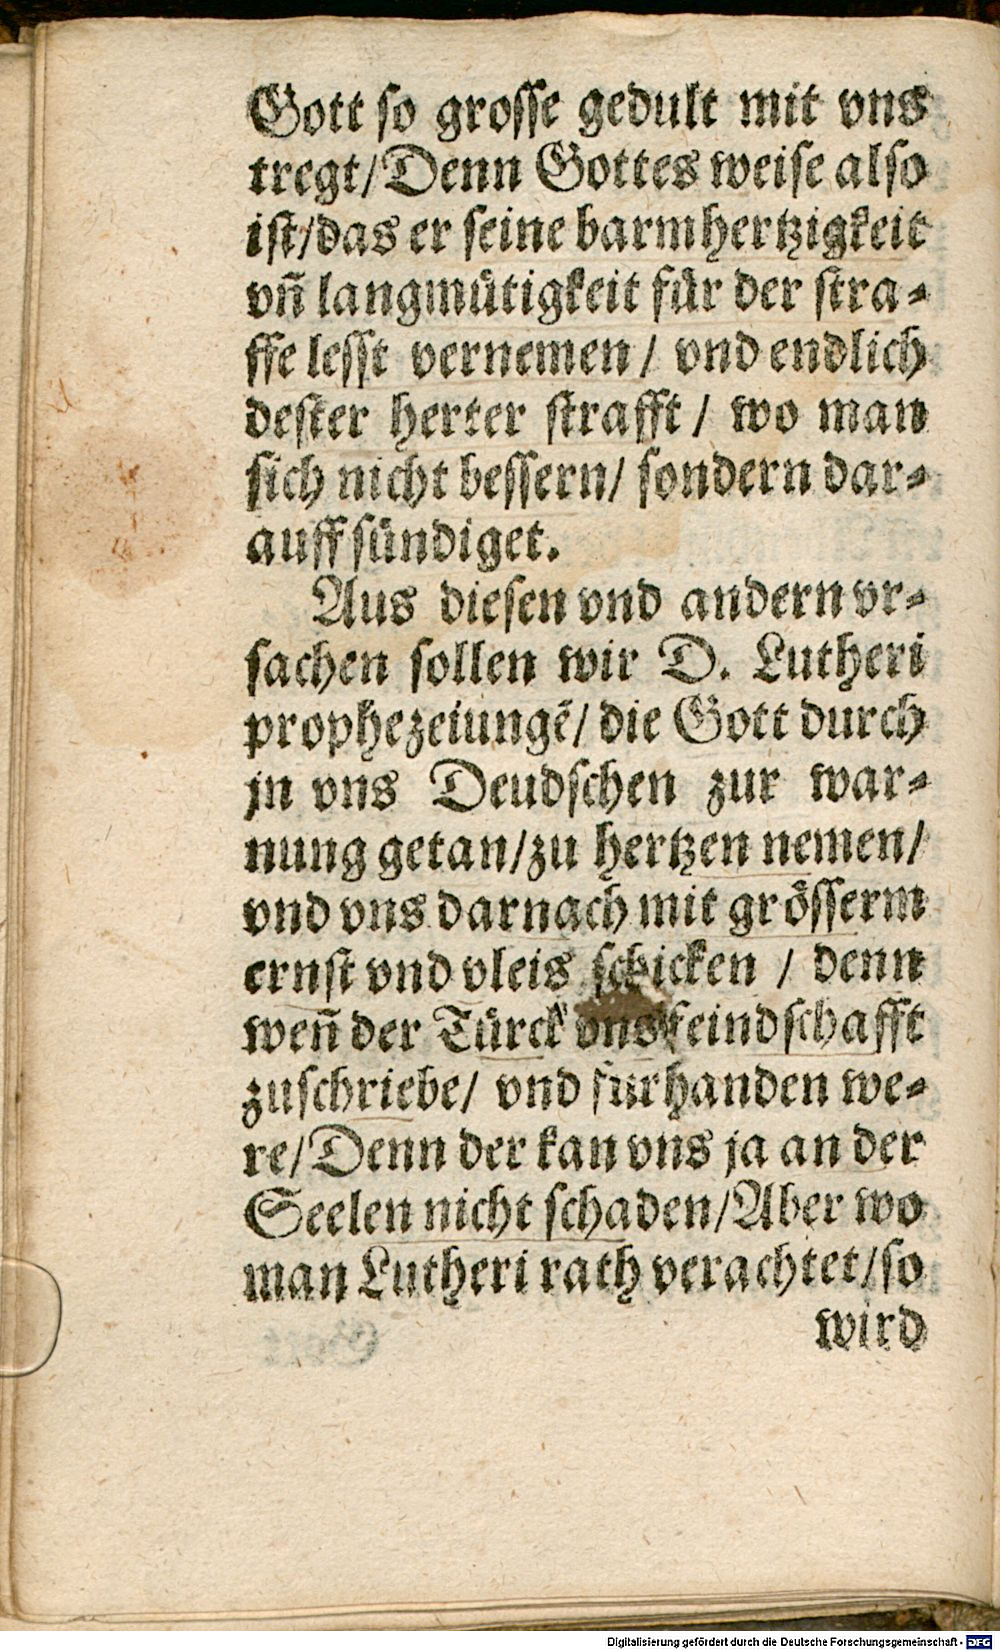 Gott so grosse gedult mit vns
tregt/Denn Gottes weise also
ist/das er seine barmhertzigkeit
vñ langmütigkeit für der stra-
ffe lesst vernemen/ vnd endlich
dester herter strafft/ wo man
sich nicht bessern/ sondern dar-
auff sündiget.
Aus diesen vnd andern vr-
sachen sollen wir D. Lutheri
prophezeiungẽ/ die Gott durch
jn vns Deudschen zur war-
nung getan/zu hertzen nemen/
vnd vns darnach mit grösserm
ernst vnd vleis schicken / denn
weñ der Türck vns feindschafft
zuschriebe/ vnd fürhanden we-
re/Denn der kan vns ja an der
Seelen nicht schaden/Aber wo
man Lutheri rath verachtet/so
wird
Digitalisierung gefördert durch die Deutsche Forschungsgemeinschaft - DFG